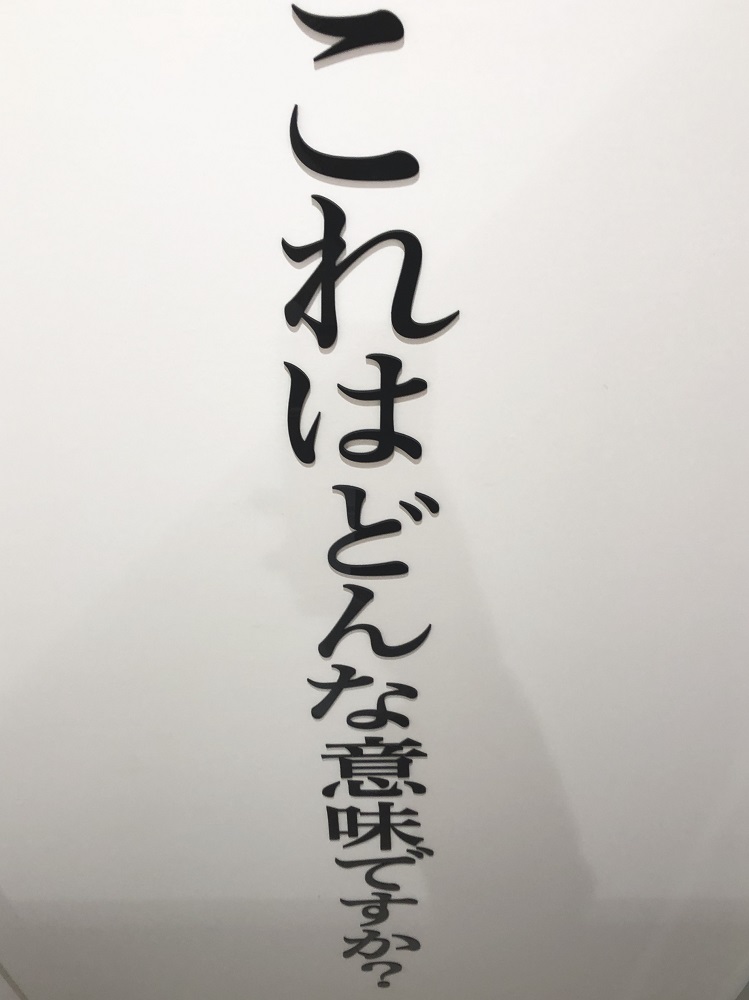 これはどんな意味ですか?